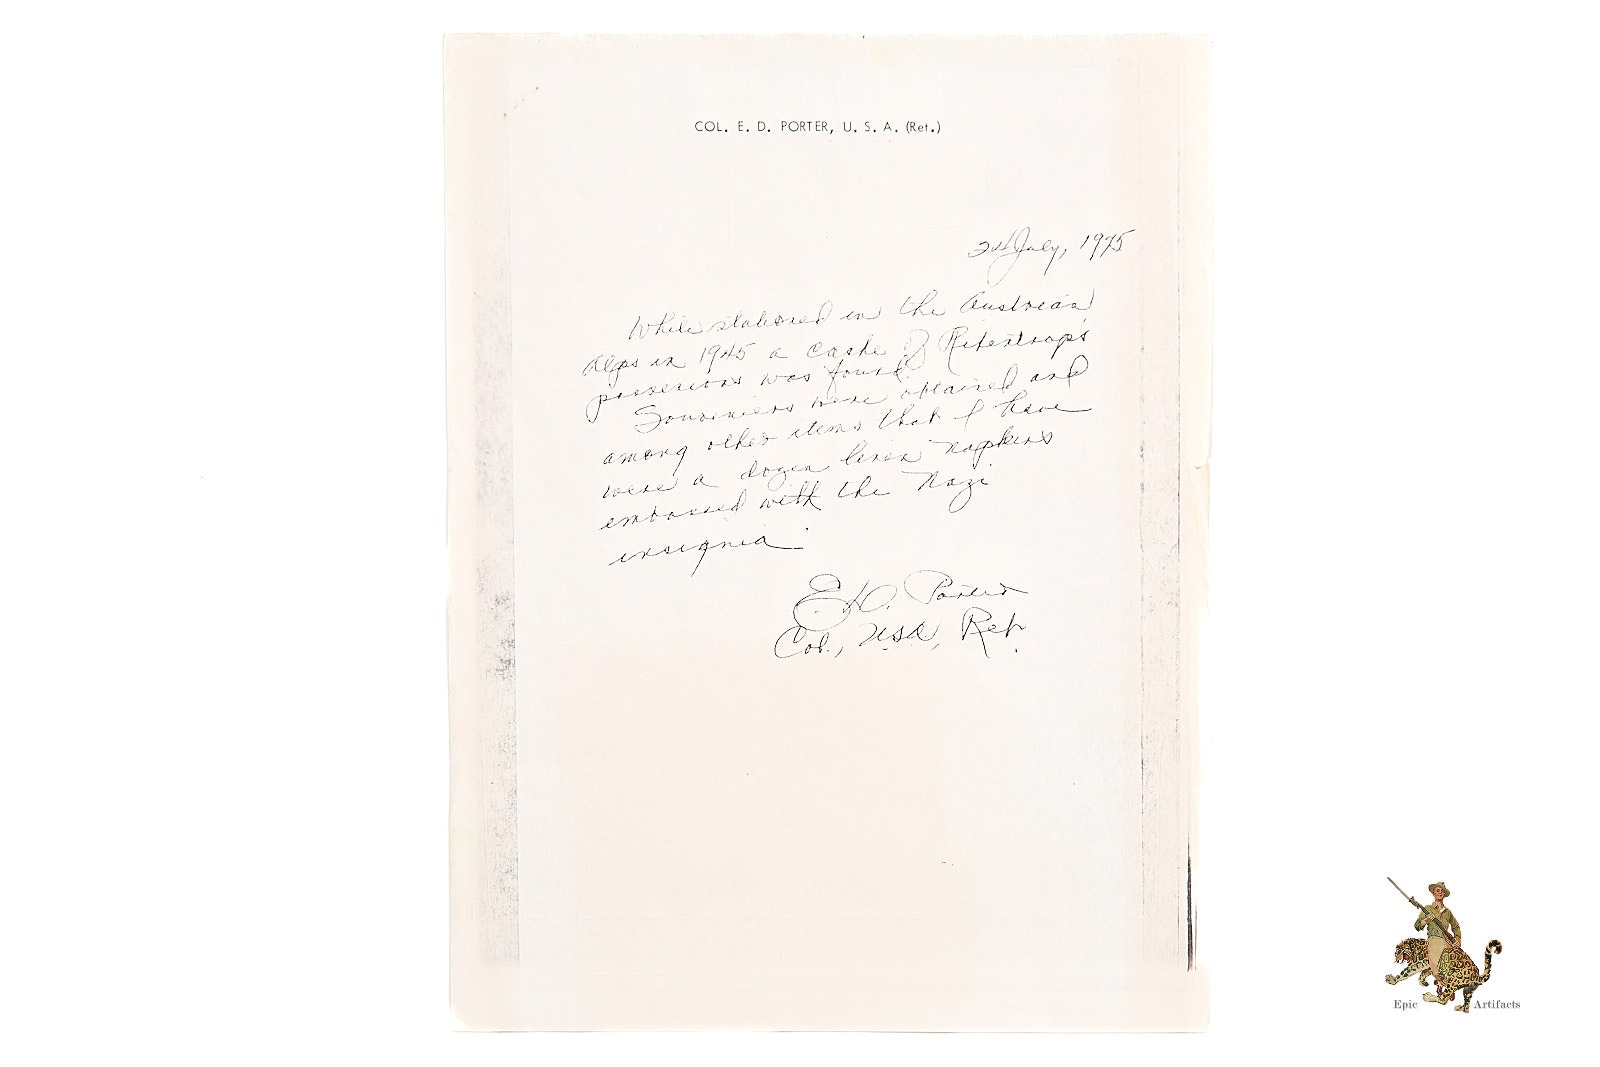 COL. E. D. PORTER, U. S. A. (Ret.)
24 July, 1975
While stationed in the Austrian
Alps in 1945 a cache of Ribentrop's
possessions was found.
Souveniers were obtained and
among other items that I have
were a dozen linen napkins
embossed with the Nazi
insignia.
E.D. Porter
Col., USA, Ret.
Epic Artifacts